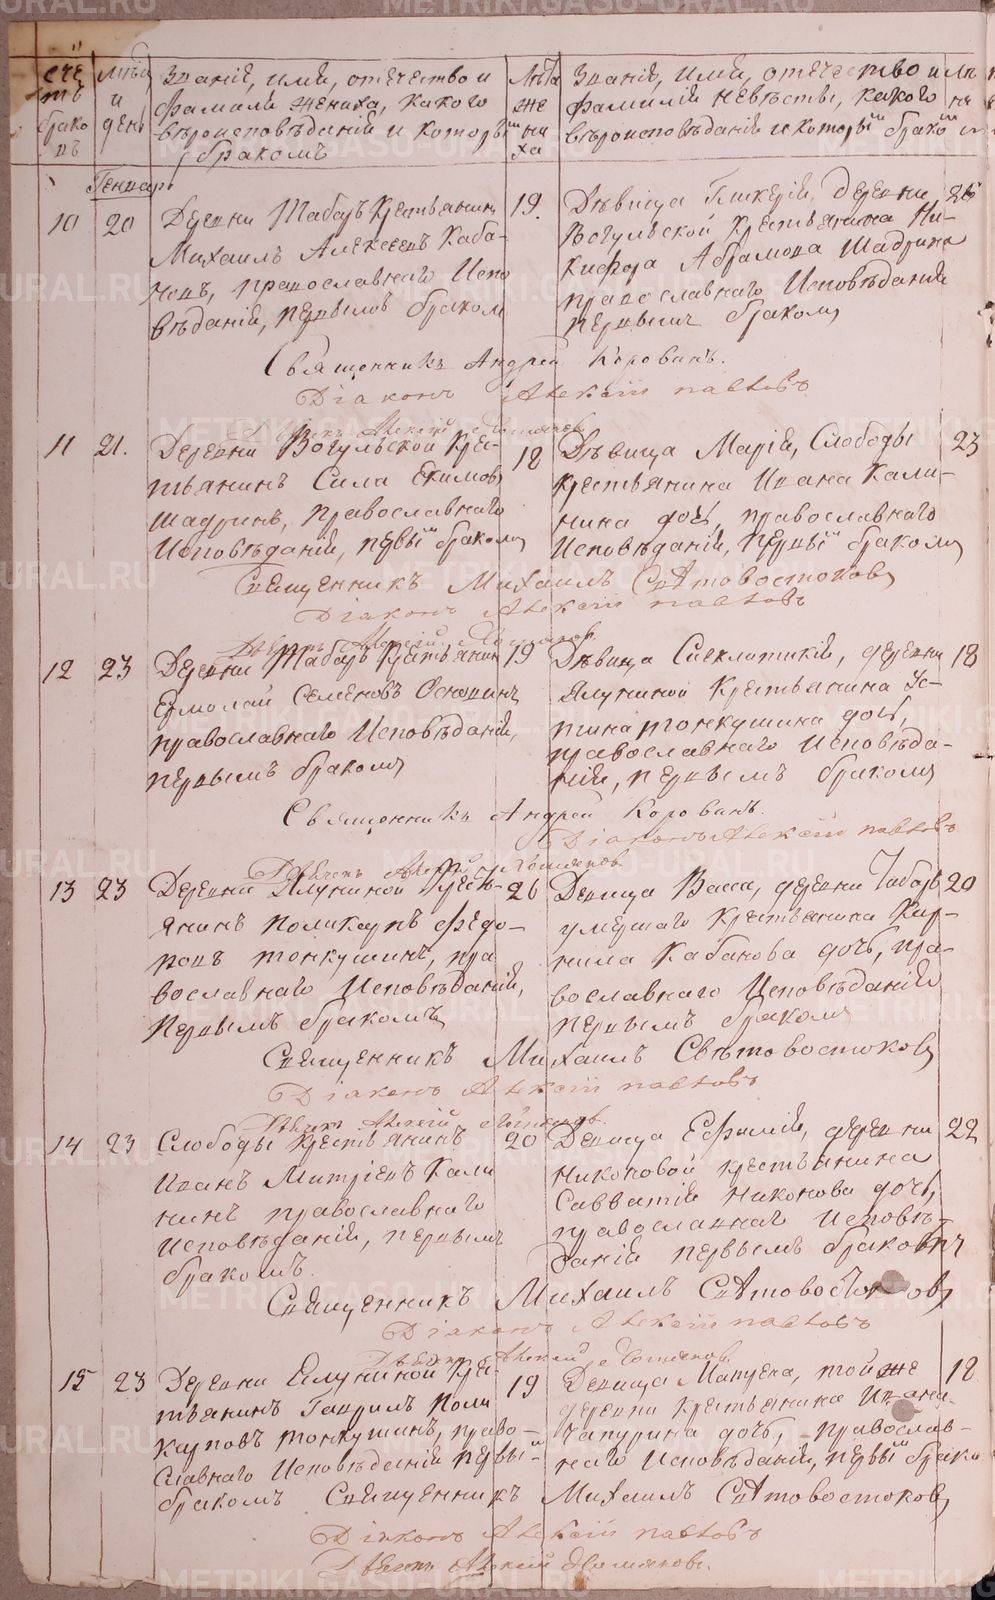 Счетъ браковъ
Мѣсяцъ и день
Званіе, имя, отечество и
фамилія жениха, какого
вѣроисповѣданія и которымъ
бракомъ
Лѣта жениха
Званіе, имя, отечество и
фамилія невѣсты, какого
вѣроисповѣданія и которымъ бракомъ
Генварь
10 20
Деревни Табаръ Крестьянинъ
Михаилъ Алексеевъ Каба-
новъ, православнаго Испо
вѣданія, первымъ бракомъ
19.
Дѣвица Гликерія, деревни
Вогульской Крестьянина Ни-
кифора Абрамова Шадрина
православнаго Исповѣданія
первымъ бракомъ
Священникъ Андрей Корованъ.
Діаконъ Алексій Павловъ
11 21.
Деревни Вогульской Крес-
тьянинъ Сила Екимовъ
Шадринъ, Православнаго
Исповѣданія, первый бракомъ
18
Дѣвица Марія, Слободы
крестьянина Ивана Кали-
нина дочь, православнаго
Исповѣданія, первый бракомъ
23
Священникъ Михаилъ Свѣтовостоковъ
Діаконъ Алексій Павловъ
12 23
Деревни Табаръ Крестьянинъ
Ермолай Семеновъ
православнаго Исповѣданія,
первымъ бракомъ
19
Дѣвица Синклитикія, деревни
Ялуниной Крестьянина Ус-
тина Тонкушина дочь,
православнаго Исповѣда-
нія, первымъ бракомъ
18
Священникъ Андрей Корованъ.
Діаконъ Алексій Павловъ
13 23
Деревни Ялуниной Крестья-
янинъ Поликарпъ Федо-
ровъ Тонкушинъ, пра
вославнаго Исповѣданія,
первымъ бракомъ
26
Девица Васса, деревни Табаръ
умершаго Крестьянина Кир-
нила Кабанова дочь, пра-
вославнаго Исповѣданія
первымъ бракомъ
20
Священникъ Михаилъ Свѣтовостоковъ
Діаконъ Алексій Павловъ
14 23
Слободы Крестьянинъ
Иванъ Митріевъ Кали
нинъ православнаго
Исповѣданія, первымъ
бракомъ.
20
Девица Ефимія, деревни
Никоновой крестьянина
Савватія Никонова дочь,
православнаго Исповѣ-
данія первымъ бракомъ
22
Священникъ Михаилъ Свѣтовостоковъ
Діаконъ Алексій Павловъ
15 23
Деревни Елуниной Крес-
тьянинъ Гаврилъ Поли
карповъ Тонкушинъ, право-
славнаго Исповѣданія первый
бракомъ
19
Девица Мапуеа, той же
деревни крестьянина Ивана
Чапурина дочь, православ-
наго Исповѣданія, первый бракомъ
18
Священникъ Михаилъ Свѣтовостоковъ
Діаконъ Алексій Павловъ
METRIKI.GASO-URAL.RU